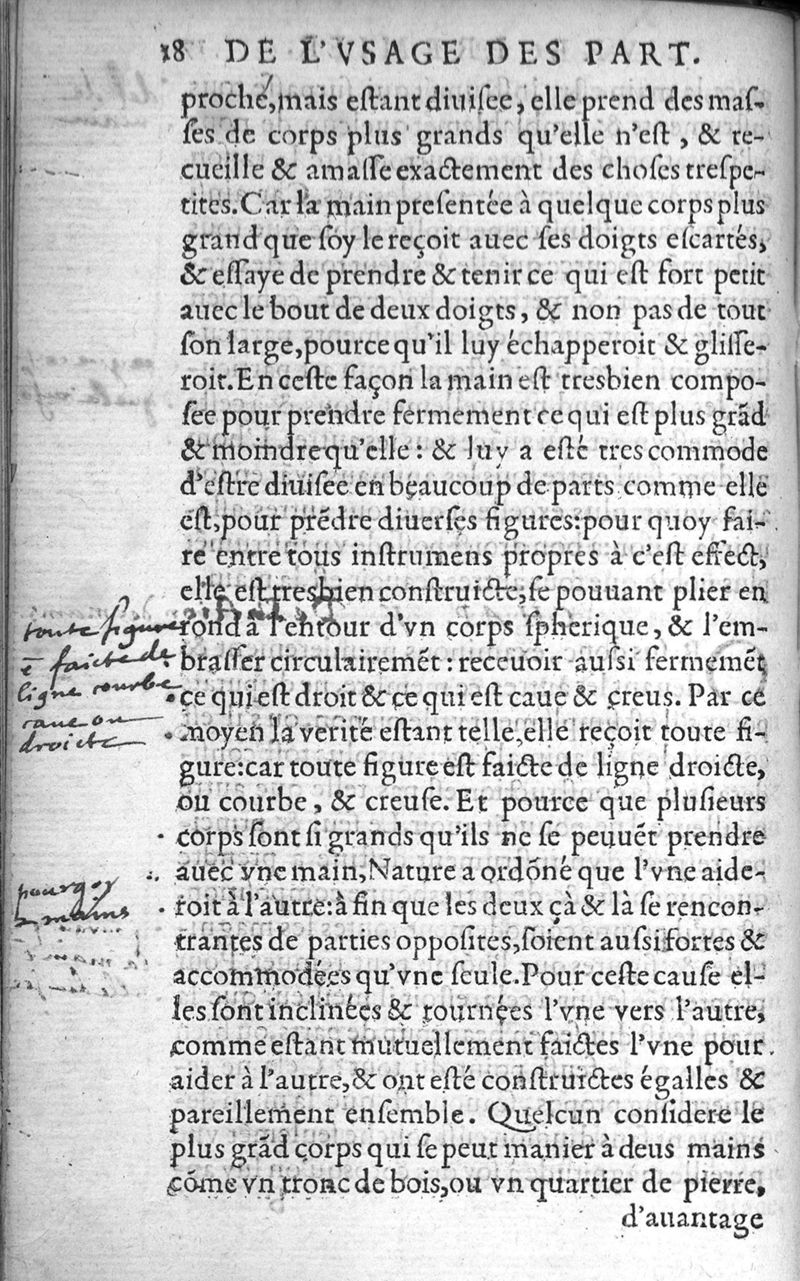 18 DE L'VSAGE DES PART.
proche,mais eſtant diuiſee, elle prend des maſ-
ſes de corps plus grands qu'elle n'eſt , & re-
cueille & amaſſe exactement des choſes treſpe-
tites.Car la main preſentée à quelque corps plus
grand que ſoy le reçoit auec ſes doigts eſcartés,
& eſſaye de prendre & tenir ce qui eſt fort petit
auec le bout de deux doigts, & non pas de tout
ſon large,pource qu'il luy échapperoit & gliſſe-
roit.En ceſte façon la main eſt tresbien compo-
ſee pour prendre fermement ce qui eſt plus grãd
& moindre qu'elle : & luy a eſté tres commode
d'eſtre diuiſee en beaucoup de parts comme elle
eſt,pour prẽdre diuerſes figures:pour quoy fai-
re entre tous inſtrumens propres à c'eſt effect,
elle eſt tresbien conſtruicte,ſe pouuant plier en
toute figure
rond à l'entour d'vn corps ſpherique, & l'em-
ẽ faicte de
braſſer circulairemẽt : receuoir auſsi fermemẽt
ligne courbe
ce qui eſt droit & ce qui eſt caue & creus. Par ce
caue ou
droicte
moyen la verité eſtant telle,elle reçoit toute fi-
gure:car toute figure eſt faicte de ligne droicte,
ou courbe , & creuſe. Et pource que pluſieurs
corps ſont ſi grands qu'ils ne ſe peuuẽt prendre
auec vne main,Nature a ordõné que l'vne aide-
pourquoy
2 mains
roit à l'autre:à fin que les deux çà & là ſe rencon-
trantes de parties oppoſites,ſoient auſsi fortes &
accommodées qu'vne ſeule.Pour ceſte cauſe el-
les ſont inclinées & tournées l'vne vers l'autre,
comme eſtant mutuellement faictes l'vne pour
aider à l'autre,& ont eſté conſtruictes égalles &
pareillement enſemble. Quelcun conſidere le
plus grãd corps qui ſe peut manier à deus mains
cõme vn tronc de bois,ou vn quartier de pierre,
d'auantage